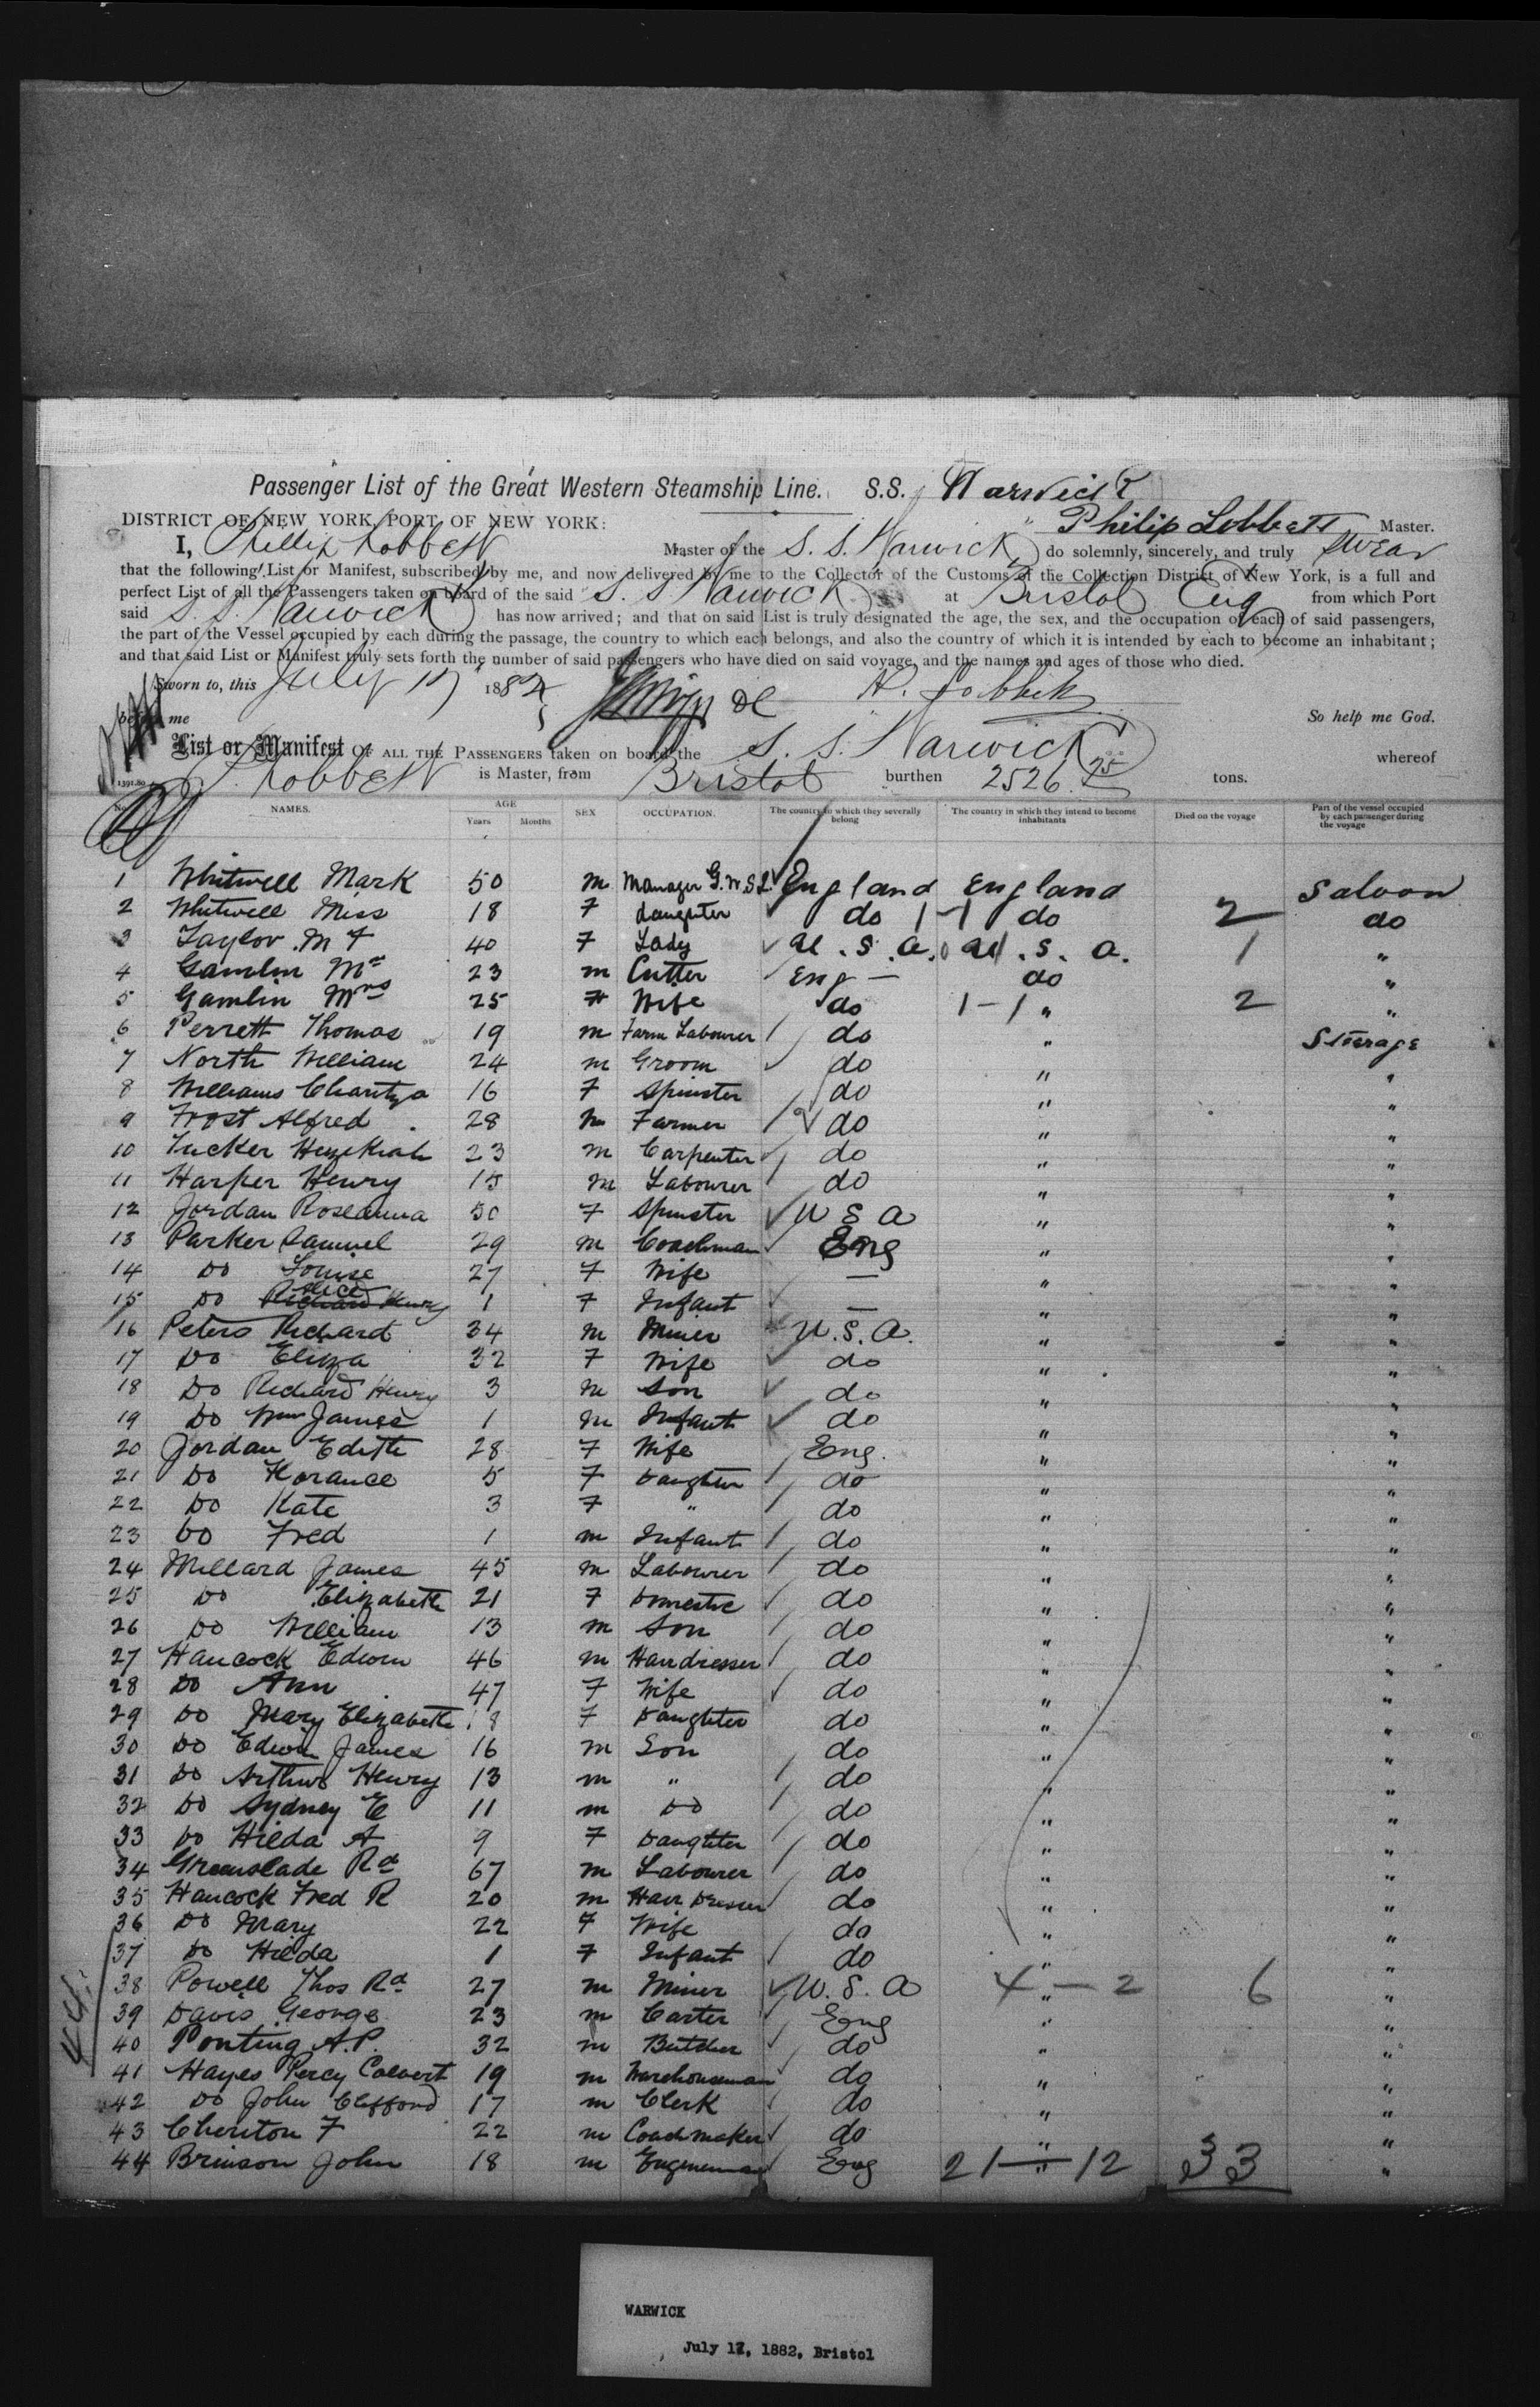 Passenger List of the Great Western Steamship Line. S.S. Warwick
DISTRICT OF NEW YORK, PORT OF NEW YORK: Philip Lobbett Master.
I, Phillip Lobbett Master of the S. S. Warwick do solemnly, sincerely, and truly swear
that the following List or Manifest, subscribed by me, and now delivered by me to the Collector of the Customs of the Collection District of New York, is a full and
perfect List of all the Passengers taken on board of the said S. S Warwick at Bristol Eng from which Port
said S. S. Warwick has now arrived; and that on said List is truly designated the age, the sex, and the occupation of each of said passengers,
the part of the Vessel occupied by each during the passage, the country to which each belongs, and also the country of which it is intended by each to become an inhabitant;
and that said List or Manifest truly sets forth the number of said passengers who have died on said voyage, and the names and ages of those who died.
Sworn to, this July 17 1882
before me So help me God.
List or Manifest OF ALL THE PASSENGERS taken on board the S. S. Warwick whereof
P. Lobbett is Master, from Bristol burthen 2526.25 tons.
No. NAMES. AGE Years Months SEX OCCUPATION. The country to which they severally belong The country in which they intend to become inhabitants Died on the voyage Part of the vessel occupied by each passenger during the voyage
1 Whitwell Mark 50 m Manager G.W.S.L. England England Saloon
2 Whitwell Miss 18 F daughter do 1-1 do 2 do
3 Taylor M F 40 F Lady U.S.A. U.S.A. 1 "
4 Gamlin Mr 23 m Cutter Eng — do "
5 Gamlin Mrs 25 F Wife do 1-1 " 2 "
6 Perrett Thomas 19 m Farm Labourer do " Steerage
7 North William 24 m Groom do " "
8 Williams Charity a 16 F Spinster do " "
9 Frost Alfred 28 m Farmer do " "
10 Tucker Hezekiah 23 m Carpenter do " "
11 Harper Henry 15 m Labourer do " "
12 Jordan Roseanna 50 F Spinster U S A " "
13 Parker Samuel 29 m Coachman Eng " "
14 Do Louise 27 F Wife — " "
15 Do Alice Richard Henry 1 F Infant — " "
16 Peters Richard 34 m Miner U.S.A. " "
17 Do Eliza 32 F Wife do " "
18 Do Richard Henry 3 m Son do " "
19 Do Wm James 1 m Infant do " "
20 Jordan Edith 28 F Wife Eng. " "
21 Do Florance 5 F Daughter do " "
22 Do Kate 3 F " do " "
23 Do Fred 1 m Infant do " "
24 Millard James 45 m Labourer do " "
25 Do Elizabeth 21 F Domestic do " "
26 Do William 13 m Son do " "
27 Hancock Edwin 46 m Hairdresser do " "
28 Do Ann 47 F Wife do " "
29 Do Mary Elizabeth 18 F Daughter do " "
30 Do Edwin James 16 m Son do " "
31 Do Arthur Henry 13 m " do " "
32 Do Sydney E 11 m Do do " "
33 Do Hilda A 9 F Daughter do " "
34 Greenslade Rd 67 m Labourer do " "
35 Hancock Fred R 20 m Hair Dresser do " "
36 Do Mary 22 F Wife do " "
37 Do Hilda 1 F Infant do " "
38 Powell Thos Rd 27 m Miner U.S.A 4 — 2 " 6 "
39 Davis George 23 m Carter Eng " "
40 Ponting A.P. 32 m Butcher do " "
41 Hayes Percy Calvert 19 m Warehouseman do " "
42 Do John Clifford 17 m Clerk do " "
43 Cheriton F 22 m Coachmaker do " "
44 Brinson John 18 m Engineman Eng 21 — 12 " 33 "
WARWICK
July 17, 1882, Bristol